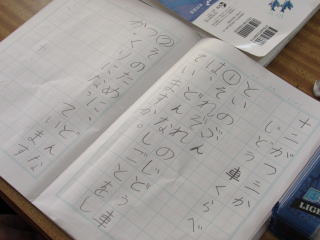 十二がつ三か
じどう車くらべ
とい
①それぞれのじどう車
は、どんなしごとをし
ていますか。
②そのために、どんな
つくりになっていま
LIGH